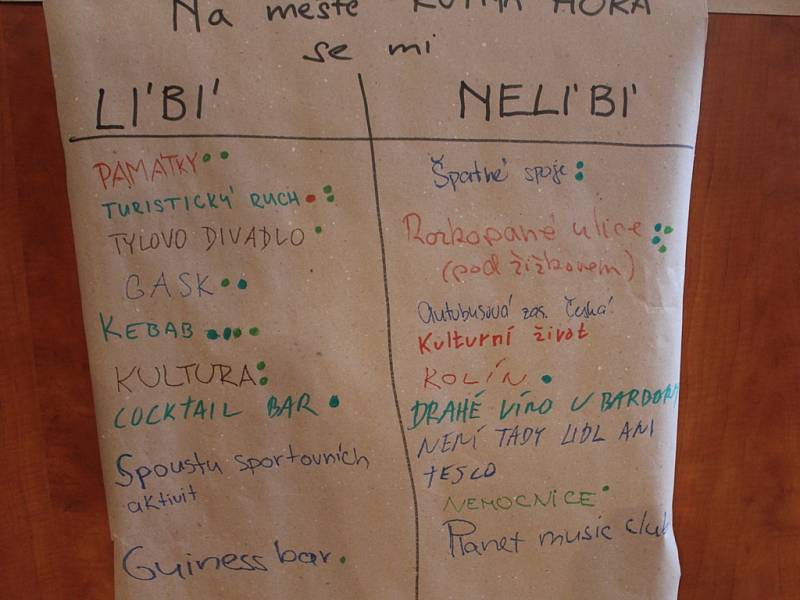 Na městě KUTNÁ HORA
se mi
LÍBÍ
NELÍBÍ
PAMÁTKY
TURISTICKÝ RUCH
TYLOVO DIVADLO
GASK
KEBAB
KULTURA
COCKTAIL BAR
Spoustu sportovních
aktivit
Guiness bar.
Špatné spoje
Rozkopané ulice
(pod žižkovem)
Autobusová zas. Česká
Kulturní život
KOLÍN
DRAHÉ VÍNO U BARDORM
NENÍ TADY LIDL ANI
TESCO
NEMOCNICE
Planet music club